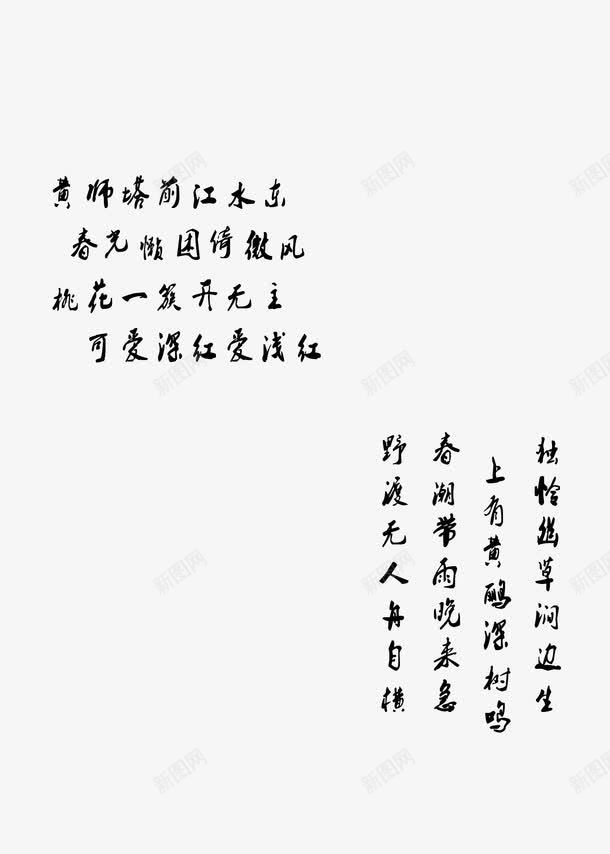 黄师塔前江水东
春光懒困倚微风
桃花一簇开无主
可爱深红爱浅红
独怜幽草涧边生
上有黄鹂深树鸣
春潮带雨晚来急
野渡无人舟自横
新图网